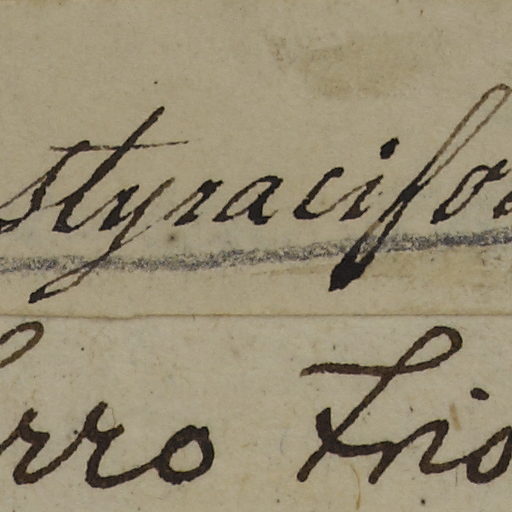 styracifo
rro Frio